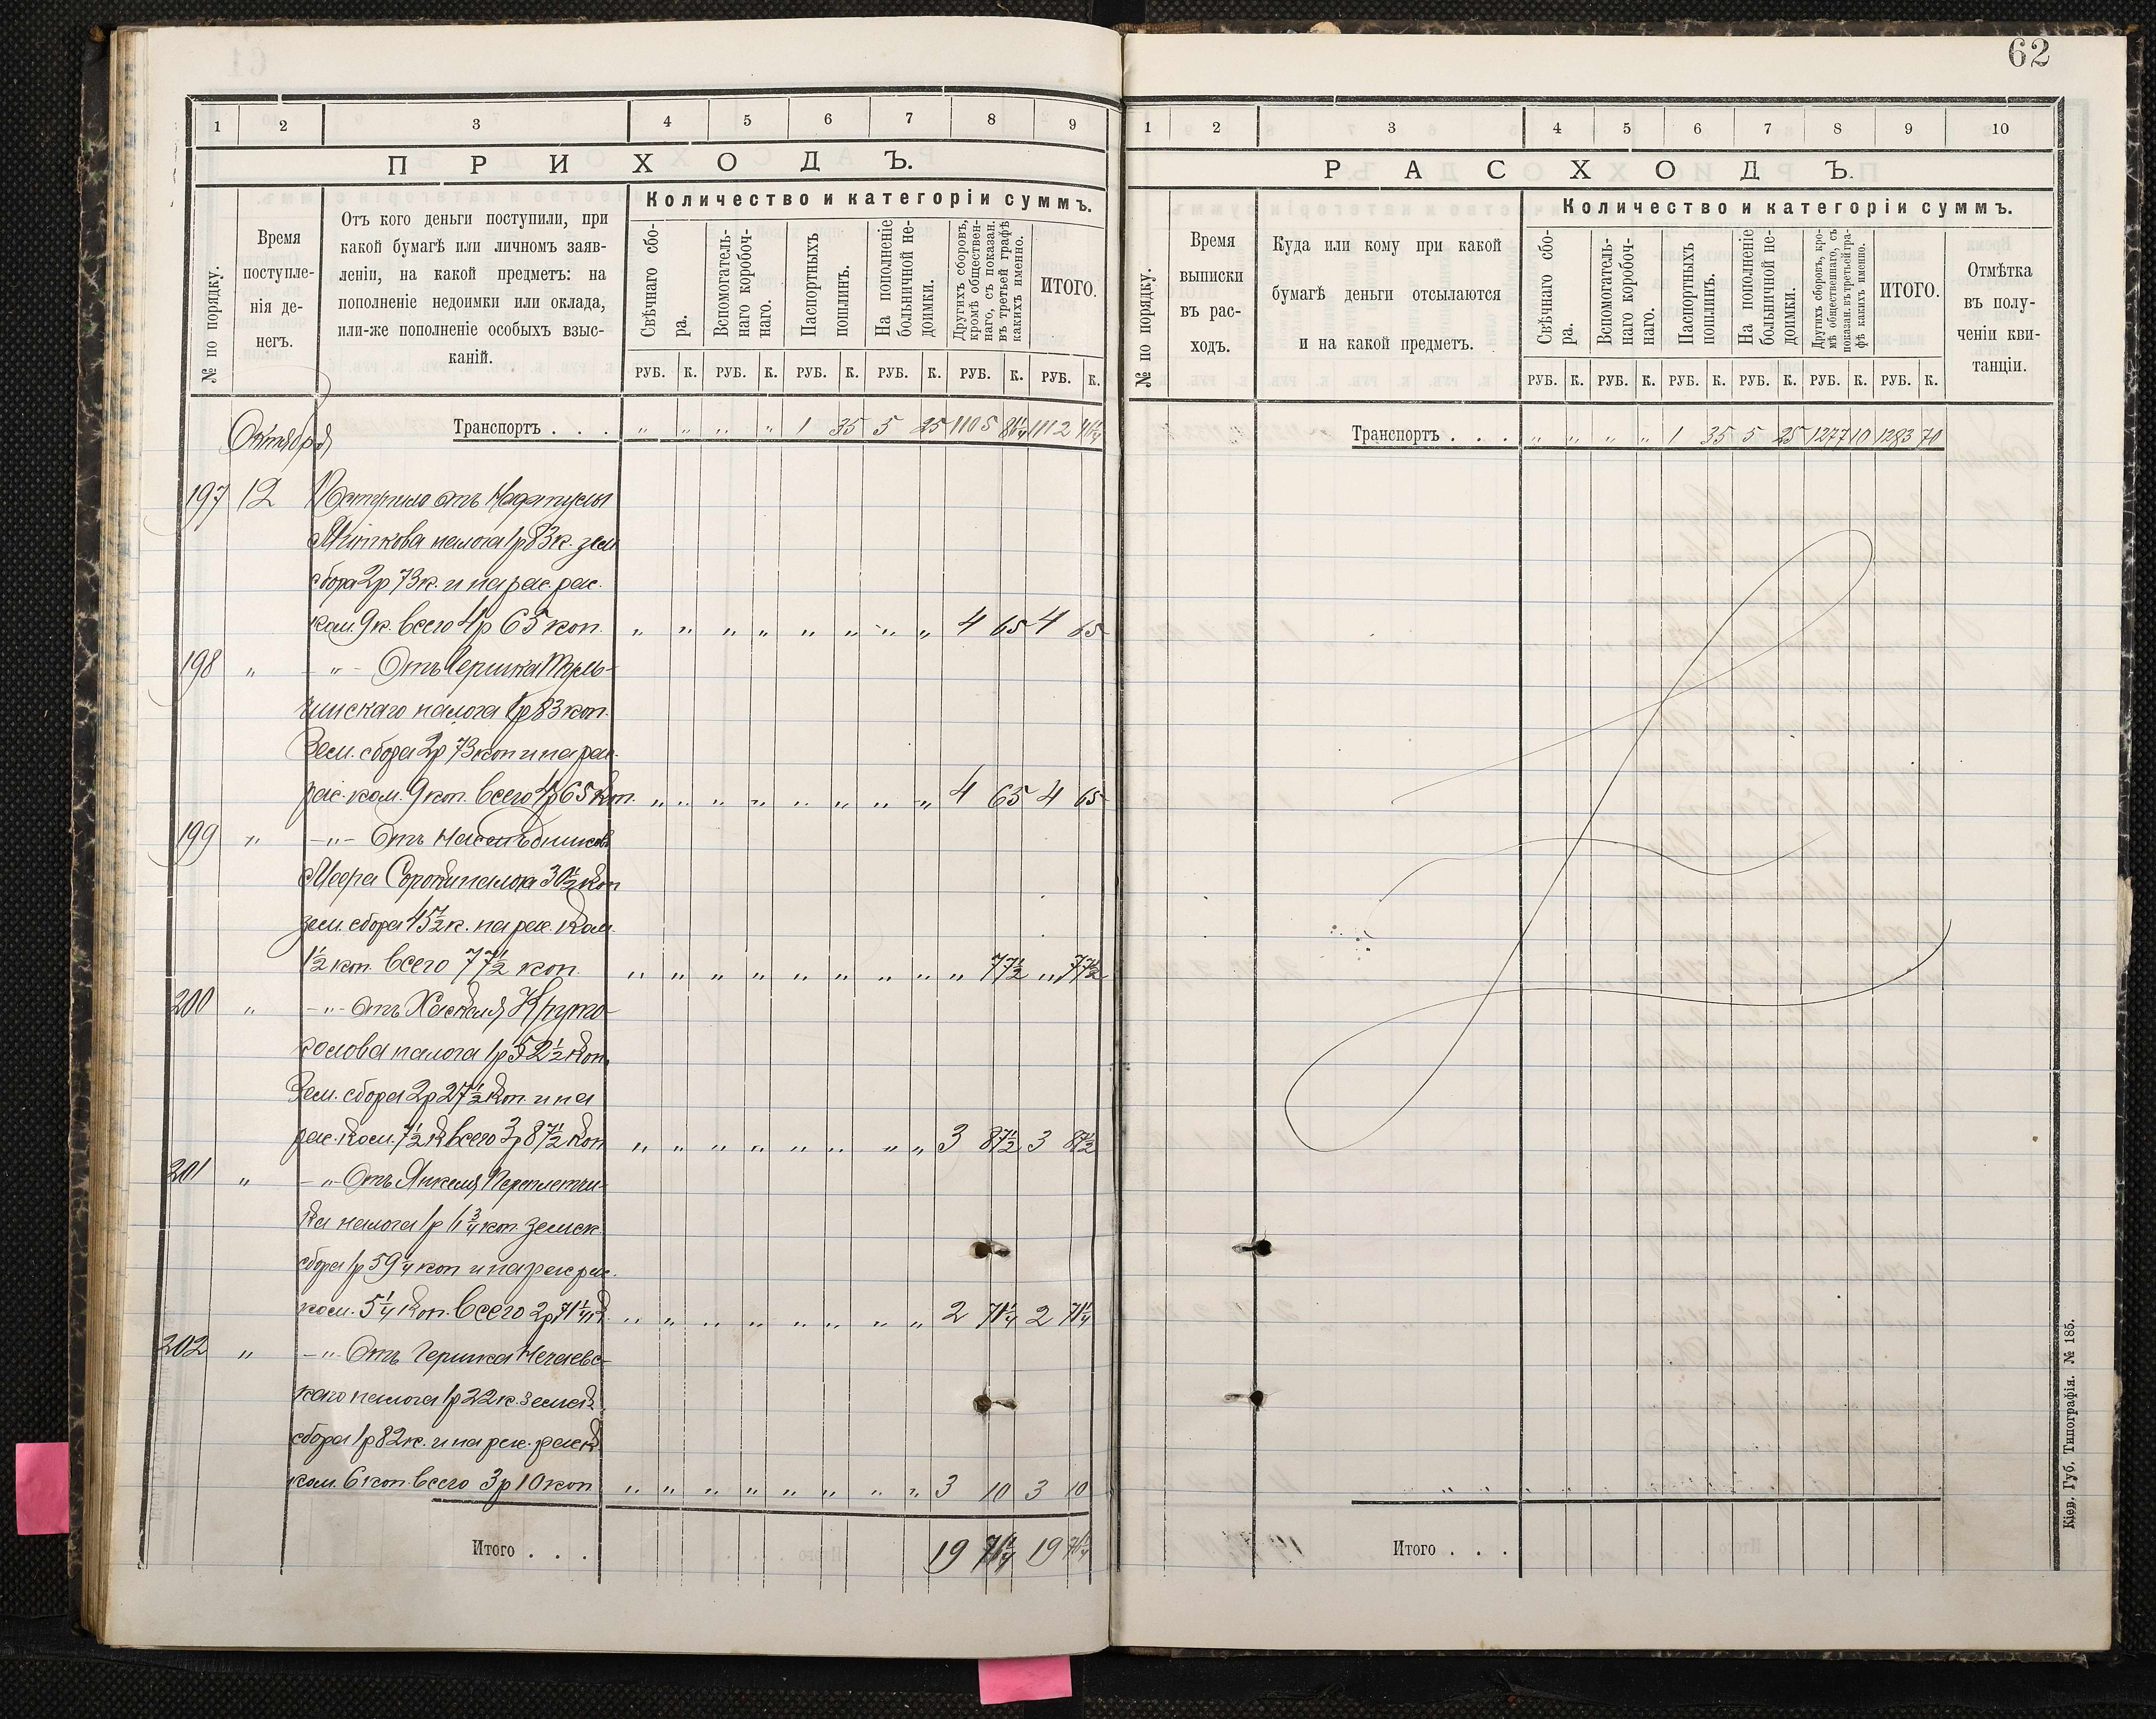 62
1 2 3 4 5 6 7 8 9
ПРИХОДЪ.
№ по порядку.
Время
поступле-
нія де-
негъ.
Отъ кого деньги поступили, при
какой бумагѣ или личномъ заяв-
леніи, на какой предметъ: на
пополненіе недоимки или оклада,
или-же пополненіе особыхъ взыс-
каній.
Количество и категоріи суммъ.
Свѣчнаго сбо-
ра.
Вспомогатель-
наго коробоч-
наго.
Паспортныхъ
пошлинъ.
На пополненіе
больничной не-
доимки.
Другихъ сборовъ,
кромѣ обществен-
наго, съ показан.
въ третьей графѣ
какихъ именно.
ИТОГО.
РУБ. К. РУБ. К. РУБ. К. РУБ. К. РУБ. К. РУБ. К.
Октября
Транспортъ . . . „ „ „ „ 1 35 5 25 1105 81¼ 1112 41¼
197 12 Поступило отъ
налога 1р 83к. зем
сбора 2р 73к. и на рас. рас.
ком. 9к. всего 4р 65 коп. „ „ „ „ „ „ „ „ 4 65 4 65
198 „ – „ – Отъ Гершка Туль-
чинскаго налога 1р 83 коп.
Зем. сбора 2р 73 коп и на рас.
рас. ком. 9 коп. всего 4р 65 коп. „ „ „ „ „ „ „ „ 4 65 4 65
199 „ – „ – Отъ Наслѣдников
Меера налога 30½ коп
зем. сбора 45½ к. на рас. ком.
1½ коп. всего 77½ коп. „ „ „ „ „ „ „ „ „ 77½ „ 77½
200 „ – „ – отъ Хаскеля Круто-
голова налога 1р 52½ коп.
Зем. сбора 2р 27½ коп и на
рас. ком. 7½ к всего 3р 87½ коп „ „ „ „ „ „ „ „ 3 87½ 3 87½
201 „ – „ – Отъ Янкеля Переплетчи-
ка налога 1р 6¾ коп. земск.
сбора 1р 59¼ коп и на рас рас.
ком. 5¼ коп. всего 2р 71¼ к. „ „ „ „ „ „ „ „ 2 71¼ 2 71¼
202 „ – „ – Отъ Гершка Нечаевс-
каго налога 1р 22к. земск
сбора 1р 82к. и на рас. раск
ком. 6 коп. всего 3р 10 коп „ „ „ „ „ „ „ „ 3 10 3 10
Итого . . . 19 76¼ 19 76¼
1 2 3 4 5 6 7 8 9 10
РАСХОДЪ.
№ по порядку.
Время
выписки
въ рас-
ходъ.
Куда или кому при какой
бумагѣ деньги отсылаются
и на какой предметъ.
Количество и категоріи суммъ.
Свѣчнаго сбо-
ра.
Вспомогатель-
наго коробоч-
наго.
Паспортныхъ
пошлинъ.
На пополненіе
больничной не-
доимки.
Другихъ сборовъ, кро-
мѣ общественнаго, съ
показан. въ третьей гра-
фѣ какихъ именно.
ИТОГО.
Отмѣтка
въ полу-
ченіи кви-
танціи.
РУБ. К. РУБ. К. РУБ. К. РУБ. К. РУБ. К. РУБ. К.
Транспортъ . . . „ „ „ „ 1 35 5 25 1277 10 1283 70
Итого . . .
Кіев. Губ. Типографія. № 185.